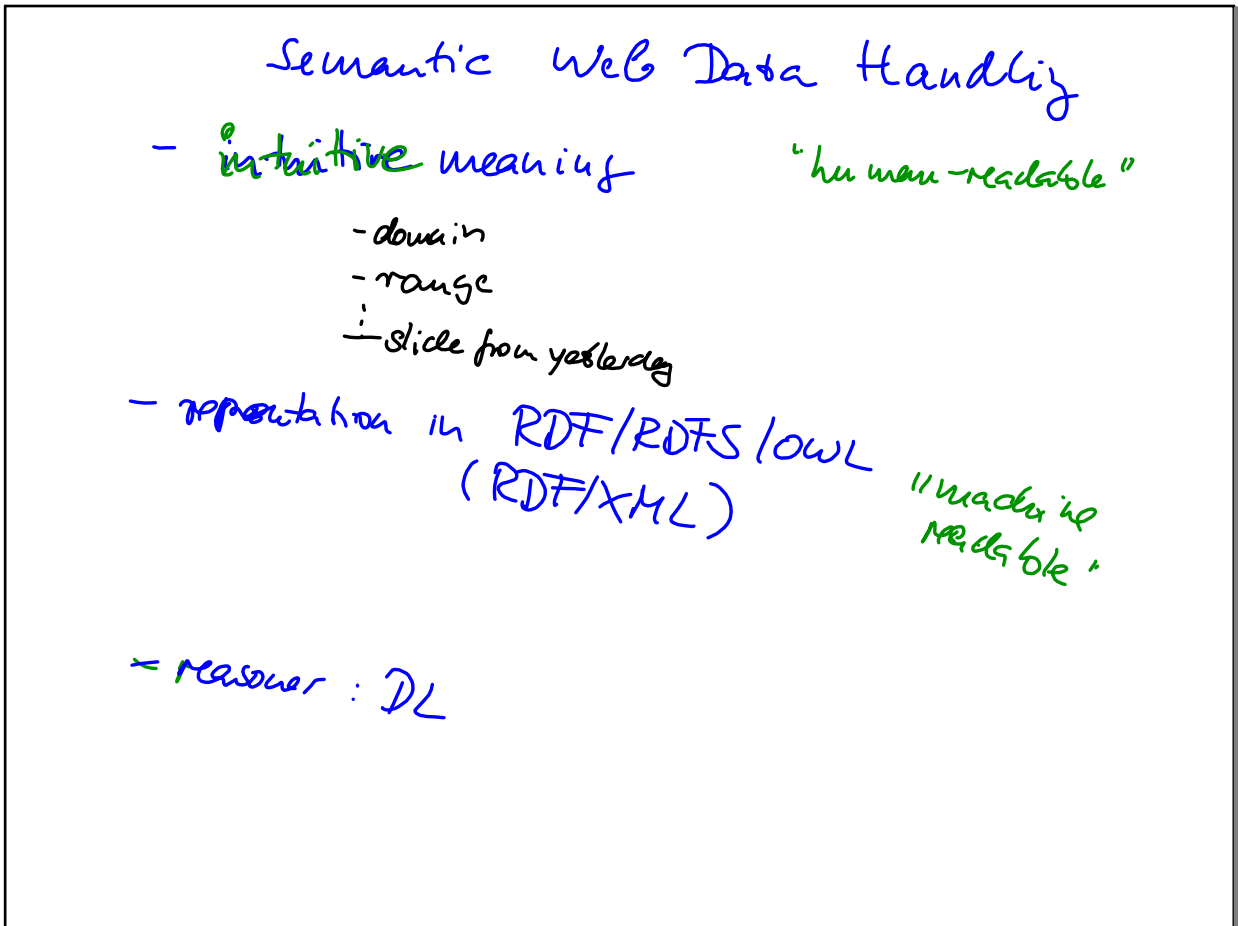 Semantic Web Data Handlig
- intuitive meaning "human-readable"
- domain
- range
⋮
- slide from yesterday
- representation in RDF/RDFS/OWL
(RDF/XML)
"machine
readable"
- reasoner : DL